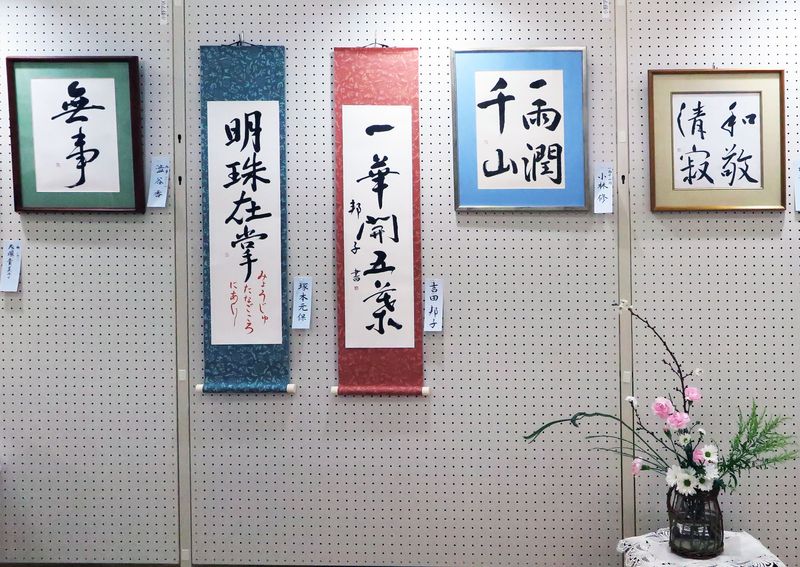 無事
澁谷香
明珠在掌
みょうじゅ
たなごころ
にあり
琢木元保
一華開五葉
邦子書
吉田邦子
一雨潤
千山
小林修
和敬
清寂